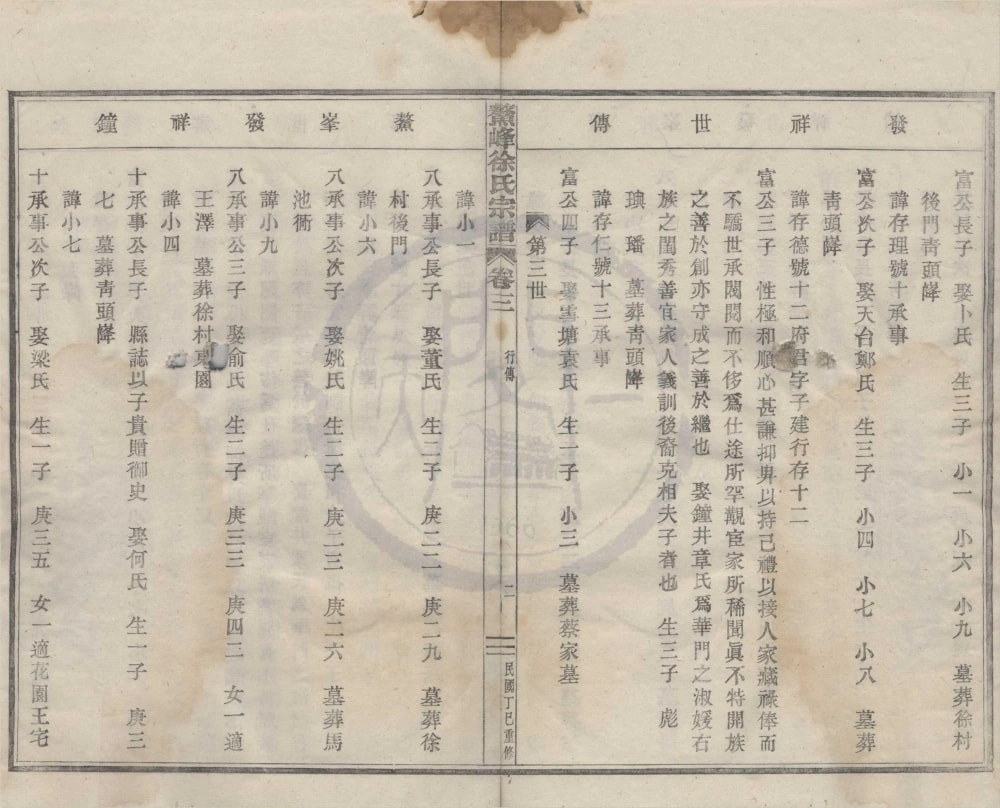 發祥世傳
富公長子 娶卜氏 生三子 小一 小六 小九 墓葬徐村
後門靑頭㟁
諱存理號十承事
富公次子 娶天台鄭氏 生三子 小四 小七 小八 墓葬
靑頭㟁
諱存德號十二府君字子建行存十二
富公三子 性極和順心甚謙抑畀以持己禮以接人家藏祿俸而
不驕世承閥閱而不侈爲仕途所罕覯宦家所稀聞眞不特開族
之善於創亦守成之善於繼也 娶鐘井章氏爲華門之淑媛右
族之閨秀善宜家人義訓後裔克相夫子者也 生三子 彪
璵 璠 墓葬靑頭㟁
諱存仁號十三承事
富公四子 娶雲塘袁氏 生一子 小三 墓葬蔡家墓
第三世
鰲峰徐氏宗譜 卷二 行傳 二 民國丁巳重修
鰲峯發祥鐘
諱小一
八承事公長子 娶董氏 生二子 庚二二 庚二九 墓葬徐
村後門
諱小六
八承事公次子 娶姚氏 生二子 庚二三 庚二六 墓葬馬
池衕
諱小九
八承事公三子 娶俞氏 生二子 庚三三 庚四二 女一適
王澤 墓葬徐村園
諱小四
十承事公長子 縣誌以子貴贈御史 娶何氏 生一子 庚三
七 墓葬靑頭㟁
諱小七
十承事公次子 娶梁氏 生一子 庚三五 女一適花園王宅